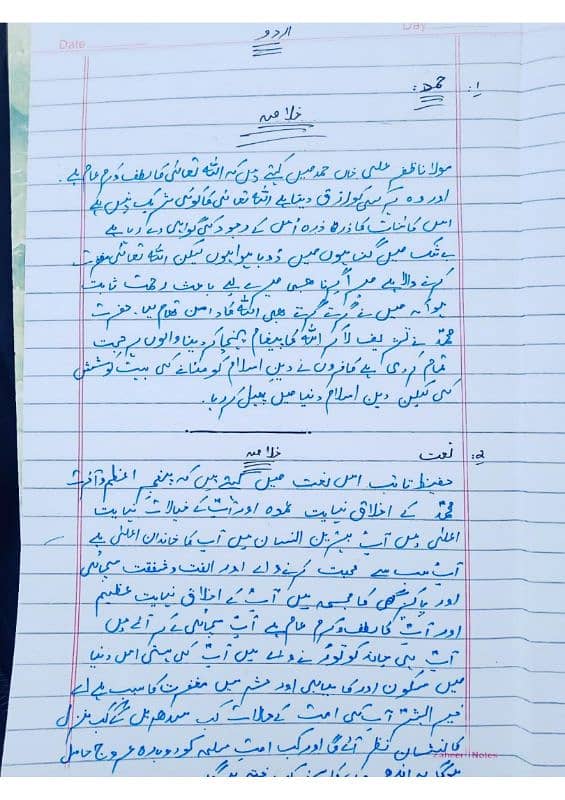 Date
Day
اردو
۱: حمد:
خلاصہ
مولانا ظفر علی خاں حمد میں کہتے ہیں کہ اللہ تعالیٰ کا لطف و کرم عام ہے۔
اور وہ ہر کسی کو رزق دیتا ہے اللہ تعالیٰ کا کوئی شریک نہیں ہے
اس کائنات کا ذرہ ذرہ اس کے وجود کی گواہی دے رہا ہے
بے شک میں گناہوں میں ڈوبا ہوا ہوں لیکن اللہ تعالیٰ مغفرت
کرنے والا ہے میرا گرنا بھی میرے لیے باعث رحمت ثابت
ہوا کہ میں نے گرتے گرتے بھی اللہ کا دامن تھام لیا۔ حضرت
محمدؐ نے تشریف لا کر اللہ کا پیغام پہنچا کر دنیا والوں پر حجت
تمام کر دی ہے کافروں نے دینِ اسلام کو مٹانے کی بہت کوشش
کی لیکن دین اسلام دنیا میں پھیل کر رہا۔
۲: نعت
خلاصہ
حفیظ تائب اس نعت میں کہتے ہیں کہ پیغمبرِ اعظم و آخرت
محمدؐ کے اخلاق نہایت عمدہ اور آپؐ کے خیالات نہایت
اعلیٰ ہیں آپؐ بہترین انسان ہیں آپ کا خاندان اعلیٰ ہے
آپؐ سب سے محبت کرنے والے اور الفت و شفقت سچائی
اور پاکیزگی کا مجسمہ ہیں آپؐ کے اخلاق نہایت عظیم
اور آپؐ کا لطف و کرم عام ہے آپؐ سچائی کے
آپؐ ہی چاند کو توڑنے والے ہیں آپؐ کی ہستی اس دنیا
میں سکون اور کامیابی اور حشر میں مغفرت کا سبب ہے اے
خیر البشرؐ آپؐ کی امت کے حالات کب سدھریں گے کب منزل
کا نشان نظر آئے گا اور کب امتِ مسلمہ کو دوبارہ عروج حاصل
Zaheer Notes